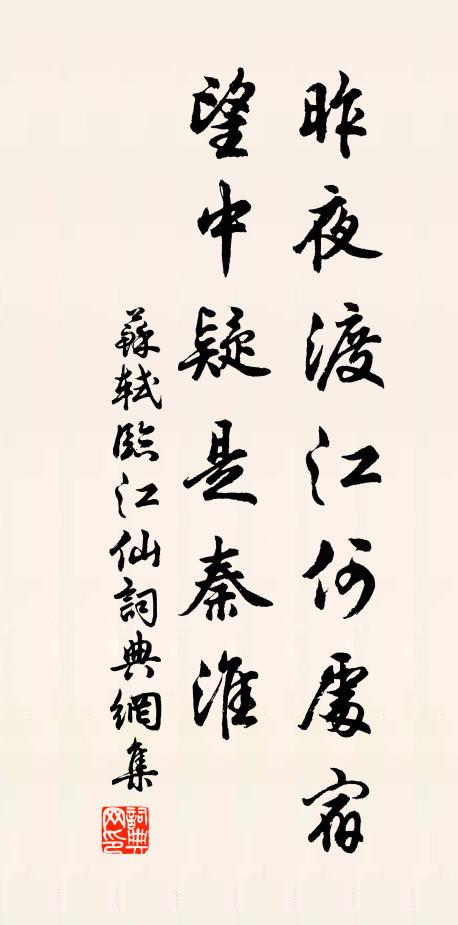 昨夜渡江何處宿
望中疑是秦淮
蘇軾臨江仙詞典網集
詞典
网印